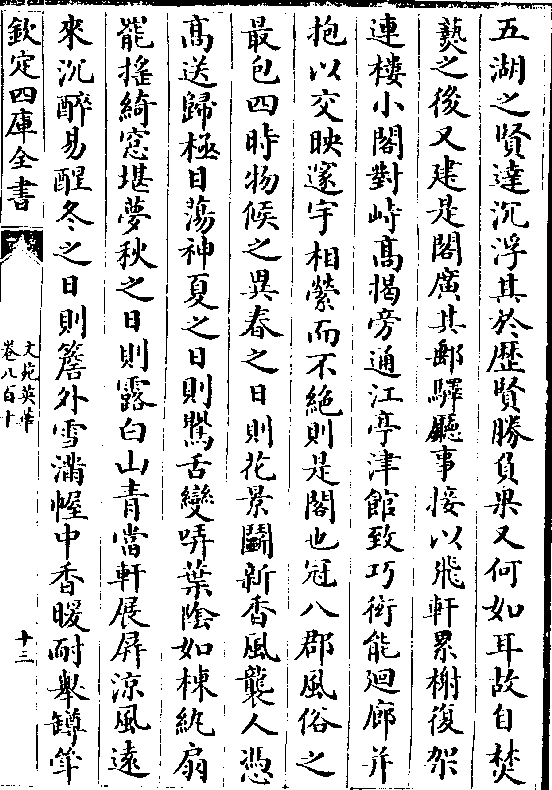 五湖之賢達沉浮其於歴賢勝負果又何如耳故自焚
爇之後又建是閣廣其郵驛廳事接以飛軒累榭復架
連樓小閣對峙髙揭旁通江亭津館致巧衒能廻廊并
抱以交映邃宇相縈而不絶則是閣也冠八郡風俗之
最包四時物候之異春之日則花景鬭新香風襲人憑
髙送歸極目蕩神夏之日則鶯舌變哢葉陰如棟紈扇
罷摇綺窓堪夢秋之日則露白山青當軒展屏涼風遠
來沉醉易醒冬之日則簷外雪滿幄中香暖耐舉罇
欽定四庫全書
文苑英華
卷八百十
十三